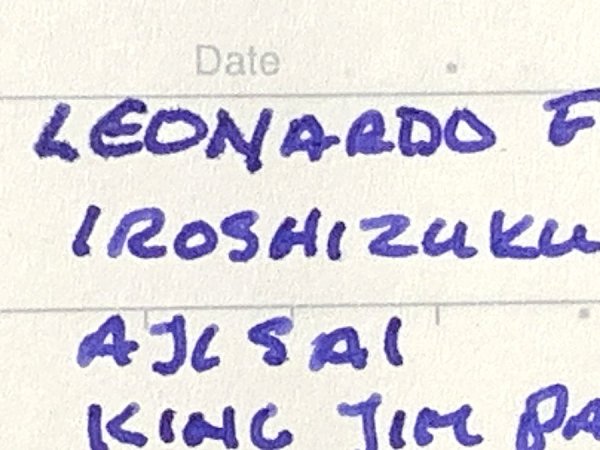 Date
LEONARDO F
IROSHIZUKU
AJISAI
KING JIM PA